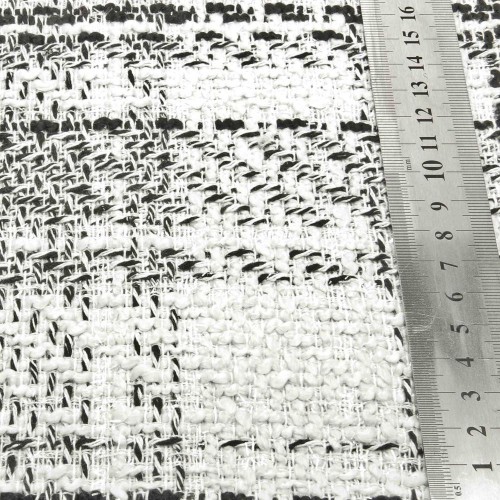 16
15
14
13
12
11
10
mm
9
8
7
6
5
4
3
2
1